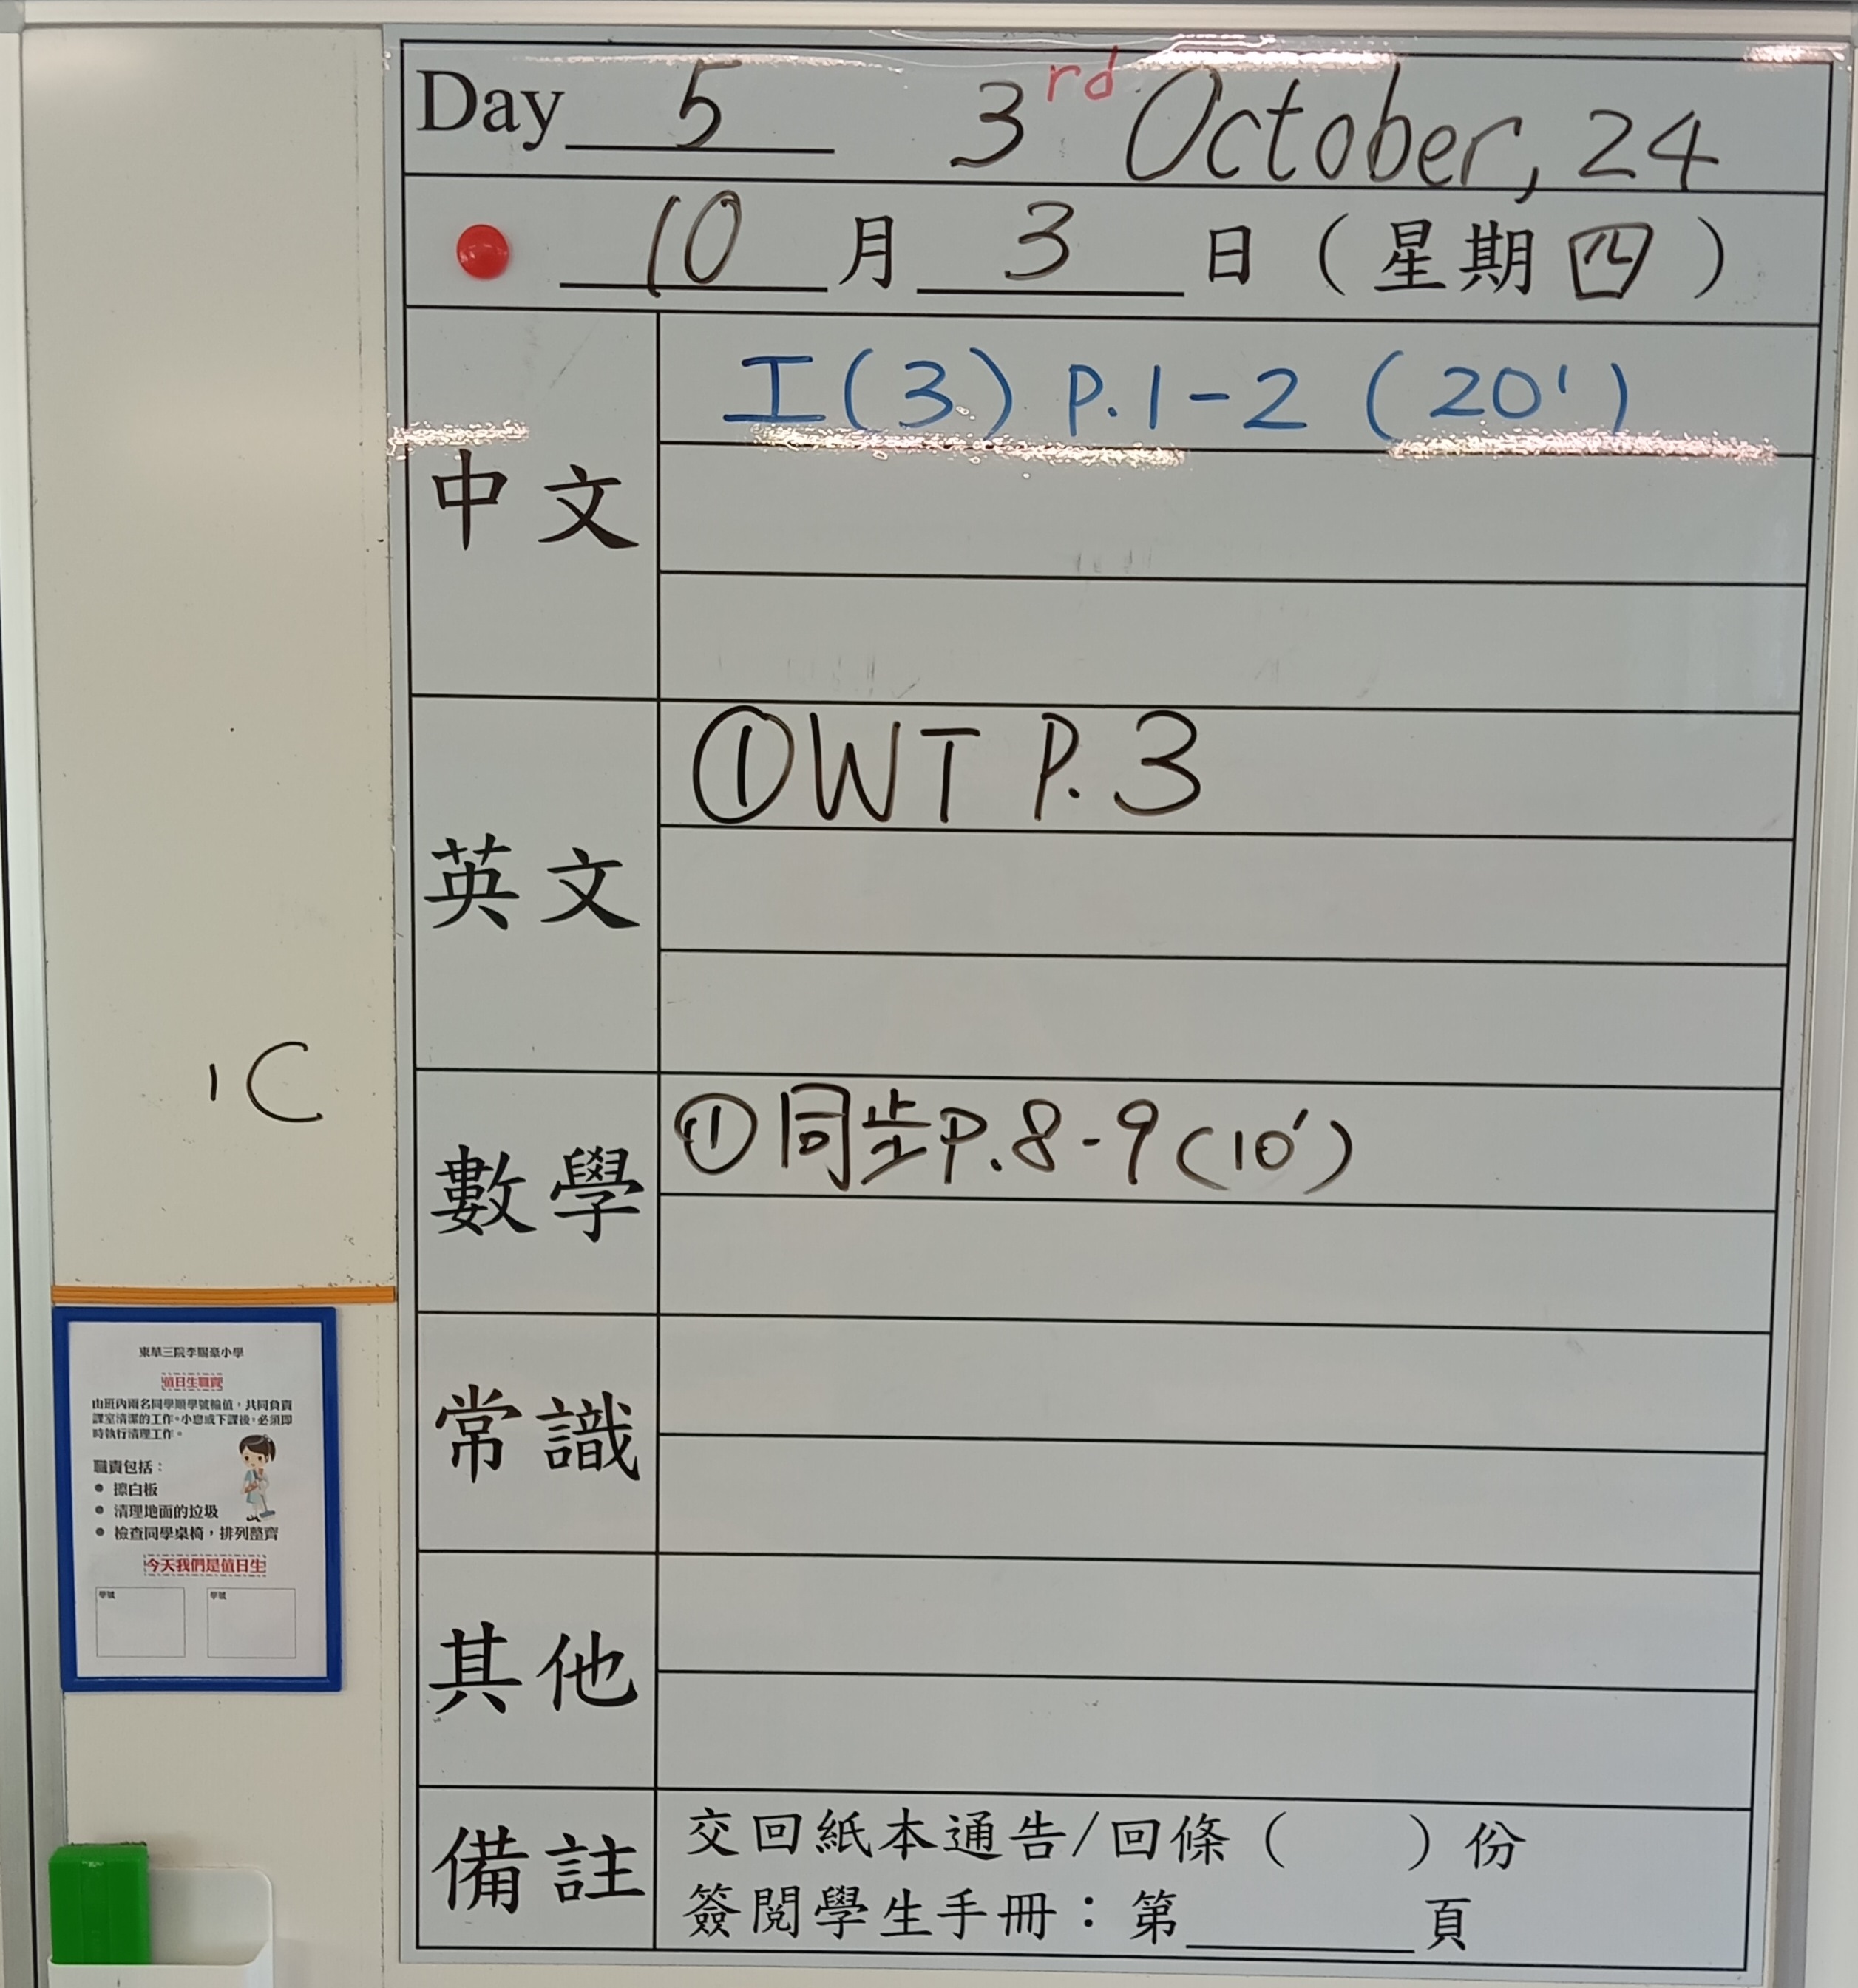 Day 5 3rd October, 24
10 月 3 日 (星期四)
中文
工(3) P.1-2 (20')
英文
① WT P.3
數學
① 同步P.8-9(10')
常識
其他
備註
交回紙本通告/回條( )份
簽閱學生手冊:第______頁
1C
東華三院李賜豪小學
值日生職責
由班內兩名同學順學號輪值,共同負責
課室清潔的工作。小息或下課後,必須即
時執行清理工作。
職責包括:
● 擦白板
● 清理地面的垃圾
● 檢查同學桌椅,排列整齊
今天我們是值日生
學號 學號